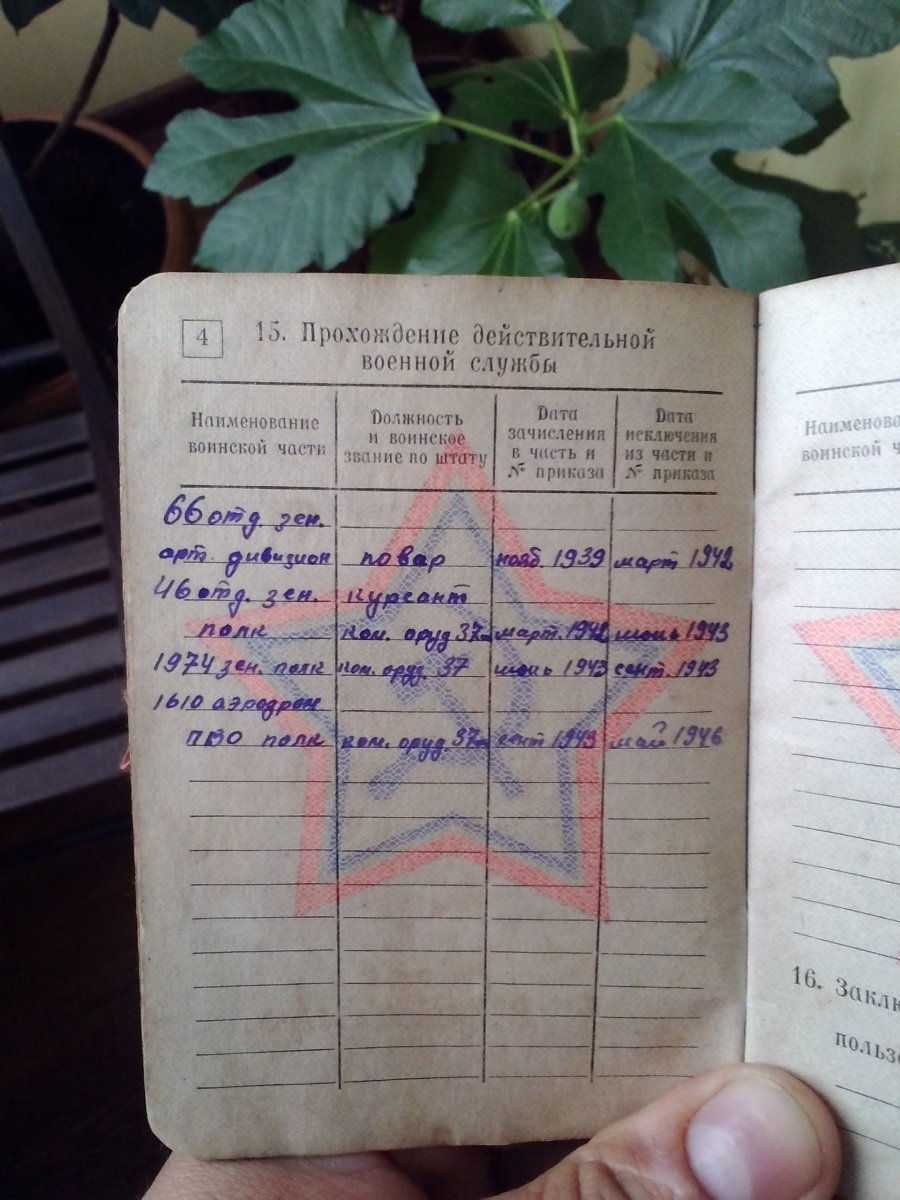 4
15. Прохождение действительной
военной службы
Наименование
воинской части
Должность
и воинское
звание по штату
Дата
зачисления
в часть и
№ приказа
Дата
исключения
из части и
№ приказа
66 отд. зен.
арт. дивизион повар нояб. 1939 март 1942
46 отд. зен. курсант
полк ком. оруд 37м март. 1942 июнь 1943
1974 зен. полк ком. оруд. 37 июнь 1943 сент. 1943
1610 аэродром
ПВО полк ком. оруд 37м сент 1943 май 1946
Наименова
воинской ч
16. Заклю
пользо